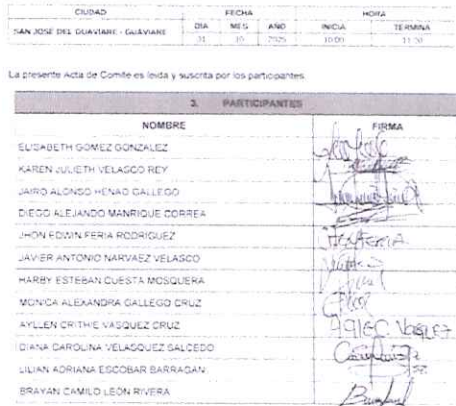 CIUDAD FECHA HORA
DIA MES AÑO INICIA TERMINA
SAN JOSE DEL GUAVIARE - GUAVIARE 31 10 2025 10:00 11:30
La presente Acta de Comité es leida y suscrita por los participantes.
3. PARTICIPANTES
NOMBRE FIRMA
ELISABETH GOMEZ GONZALEZ
KAREN JULIETH VELASCO REY
JAIRO ALONSO HENAO GALLEGO
DIEGO ALEJANDO MANRIQUE CORREA
JHON EDWIN FERIA RODRIGUEZ
JAVIER ANTONIO NARVAEZ VELASCO
HARBY ESTEBAN CUESTA MOSQUERA
MONICA ALEXANDRA GALLEGO CRUZ
AYLLEN CRITHIE VASQUEZ CRUZ
DIANA CAROLINA VELASQUEZ SALCEDO
LILIAN ADRIANA ESCOBAR BARRAGAN
BRAYAN CAMILO LEÓN RIVERA